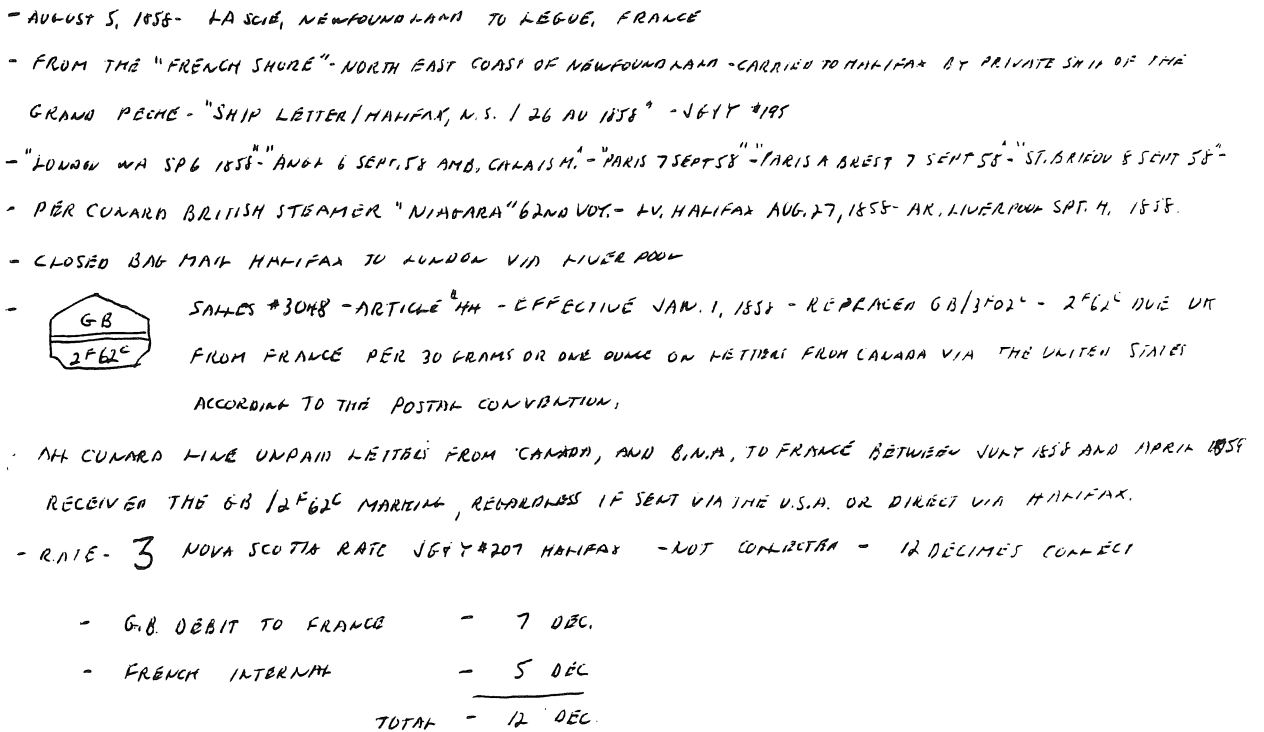 - AUGUST 5, 1858- LA SCIE, NEWFOUNDLAND TO LEGUE, FRANCE
- FROM THE "FRENCH SHORE"- NORTH EAST COAST OF NEWFOUNDLAND -CARRIED TO HALIFAX BY PRIVATE SHIP OF THE
GRAND PECHE - "SHIP LETTER/HALIFAX, N.S. / 26 AU 1858" - JGYY #195
- "LONDON WA SP6 1858"- "ANGL 6 SEPT. 58 AMB. CALAIS M." - "PARIS 7 SEPT 58" - "PARIS A BREST 7 SEPT 58" - "ST. BRIEUU 8 SEPT 58"-
- PER CUNARD BRITISH STEAMER "NIAGARA" 62ND VOY. - LV. HALIFAX AUG. 27, 1858- AR. LIVERPOOL SPT. 4, 1858.
- CLOSED BAG MAIL HALIFAX TO LONDON VIA LIVERPOOL
- GB
2F62C
SALLES #3048 - ARTICLE "44 - EFFECTIVE JAN. 1, 1858 - REPLACED GB/3F02C - 2F62C DUE UK
FROM FRANCE PER 30 GRAMS OR ONE OUNCE ON LETTERS FROM CANADA VIA THE UNITED STATES
ACCORDING TO THE POSTAL CONVENTION.
- ALL CUNARD LINE UNPAID LETTERS FROM CANADA, AND B.N.A, TO FRANCE BETWEEN JULY 1858 AND APRIL 1859
RECEIVED THE GB /2F62C MARKING, REGARDLESS IF SENT VIA THE U.S.A. OR DIRECT VIA HALIFAX.
- RATE - 3 NOVA SCOTIA RATE JGYY #207 HALIFAX - NOT COLLECTED - 12 DECIMES COLLECT
- G.B. DEBIT TO FRANCE - 7 DEC.
- FRENCH INTERNAL - 5 DEC
TOTAL - 12 DEC.